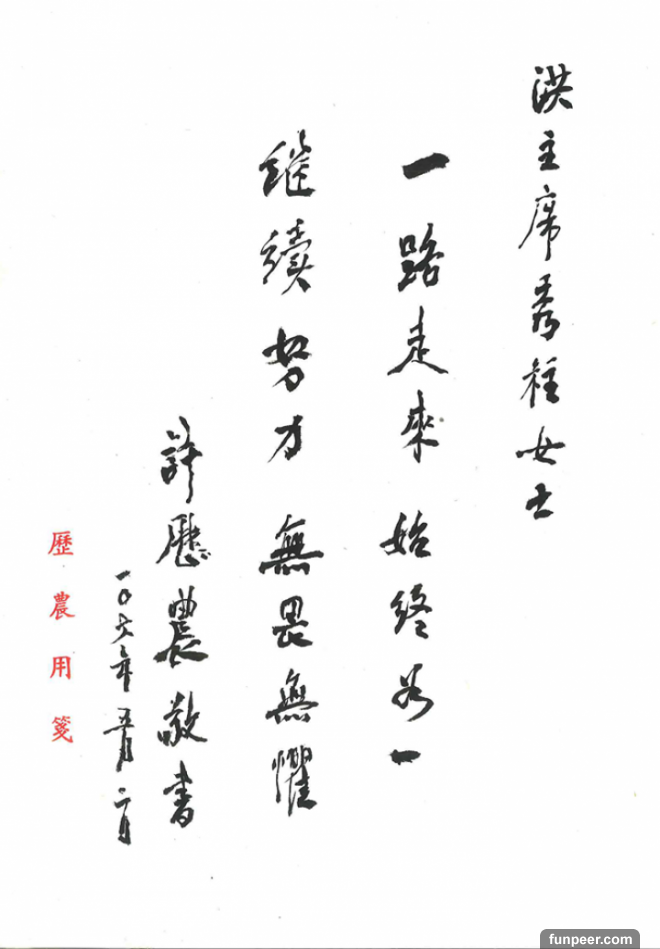 洪主席秀柱女士
一路走來 始終如一
繼續努力 無畏無懼
許歷農敬書
一〇六年五月二日
歷農用箋
funpeer.com